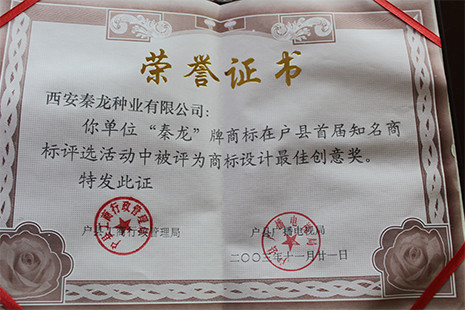 荣誉证书
西安秦龙种业有限公司:
你单位“秦龙”牌商标在户县首届知名商
标评选活动中被评为商标设计最佳创意奖。
特发此证
户县工商行政管理局 户县广播电视局
二〇〇三年十一月廿一日